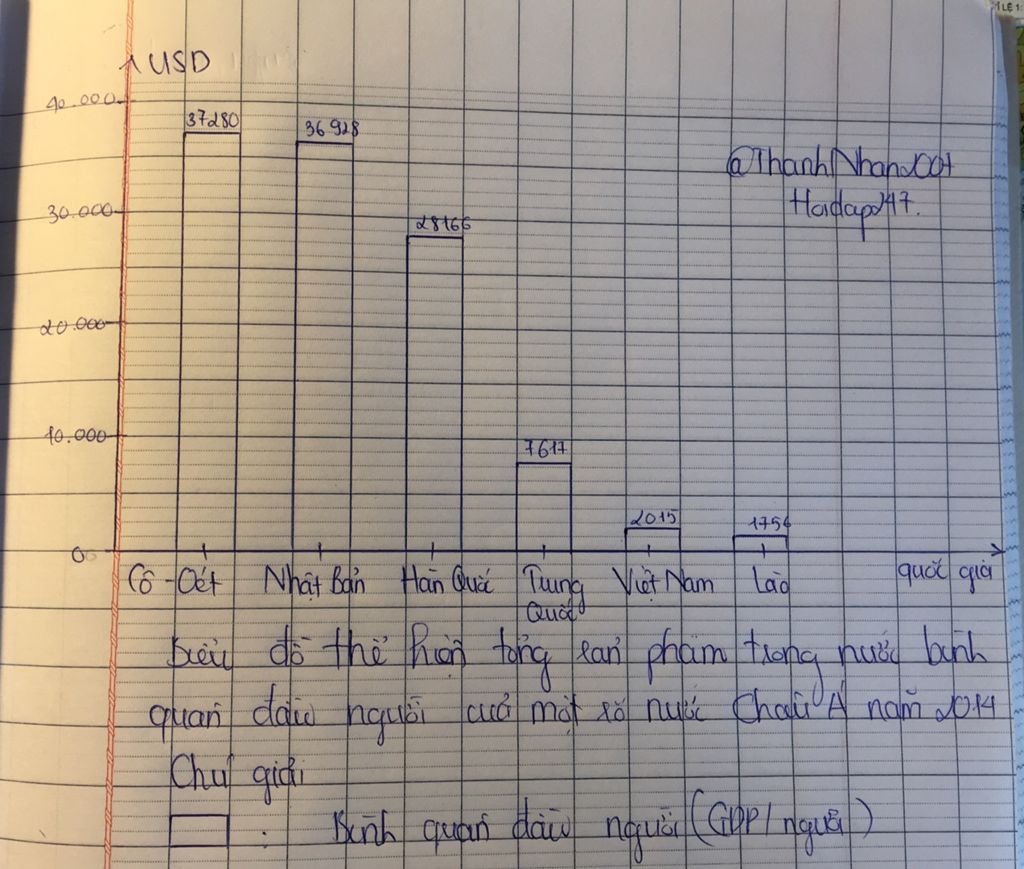 USD
40.000
37280
36928
@ThanhNhan2004
Hoidap247.
30.000
28166
20.000
10.000
7617
2015
1754
0
Cô-Oét Nhật Bản Hàn Quốc Trung Quốc Việt Nam Lào quốc gia
Biểu đồ thể hiện tổng sản phẩm trong nước bình
quân đầu người của một số nước Châu Á năm 2014
Chú giải
: Bình quân đầu người (GDP/người)